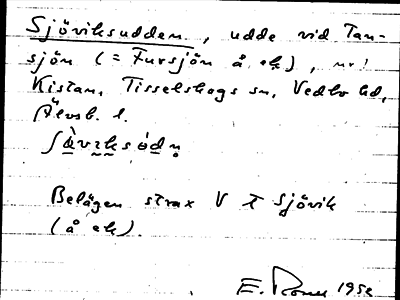 Sjöviksudden, udde vid Tan-
sjön (= Fursjön å ek),
Kistan, Tisselskogs sn, Vedbo hd,
Älvsb. l.
Belägen strax V t Sjövik
(å ek).
E. 1952